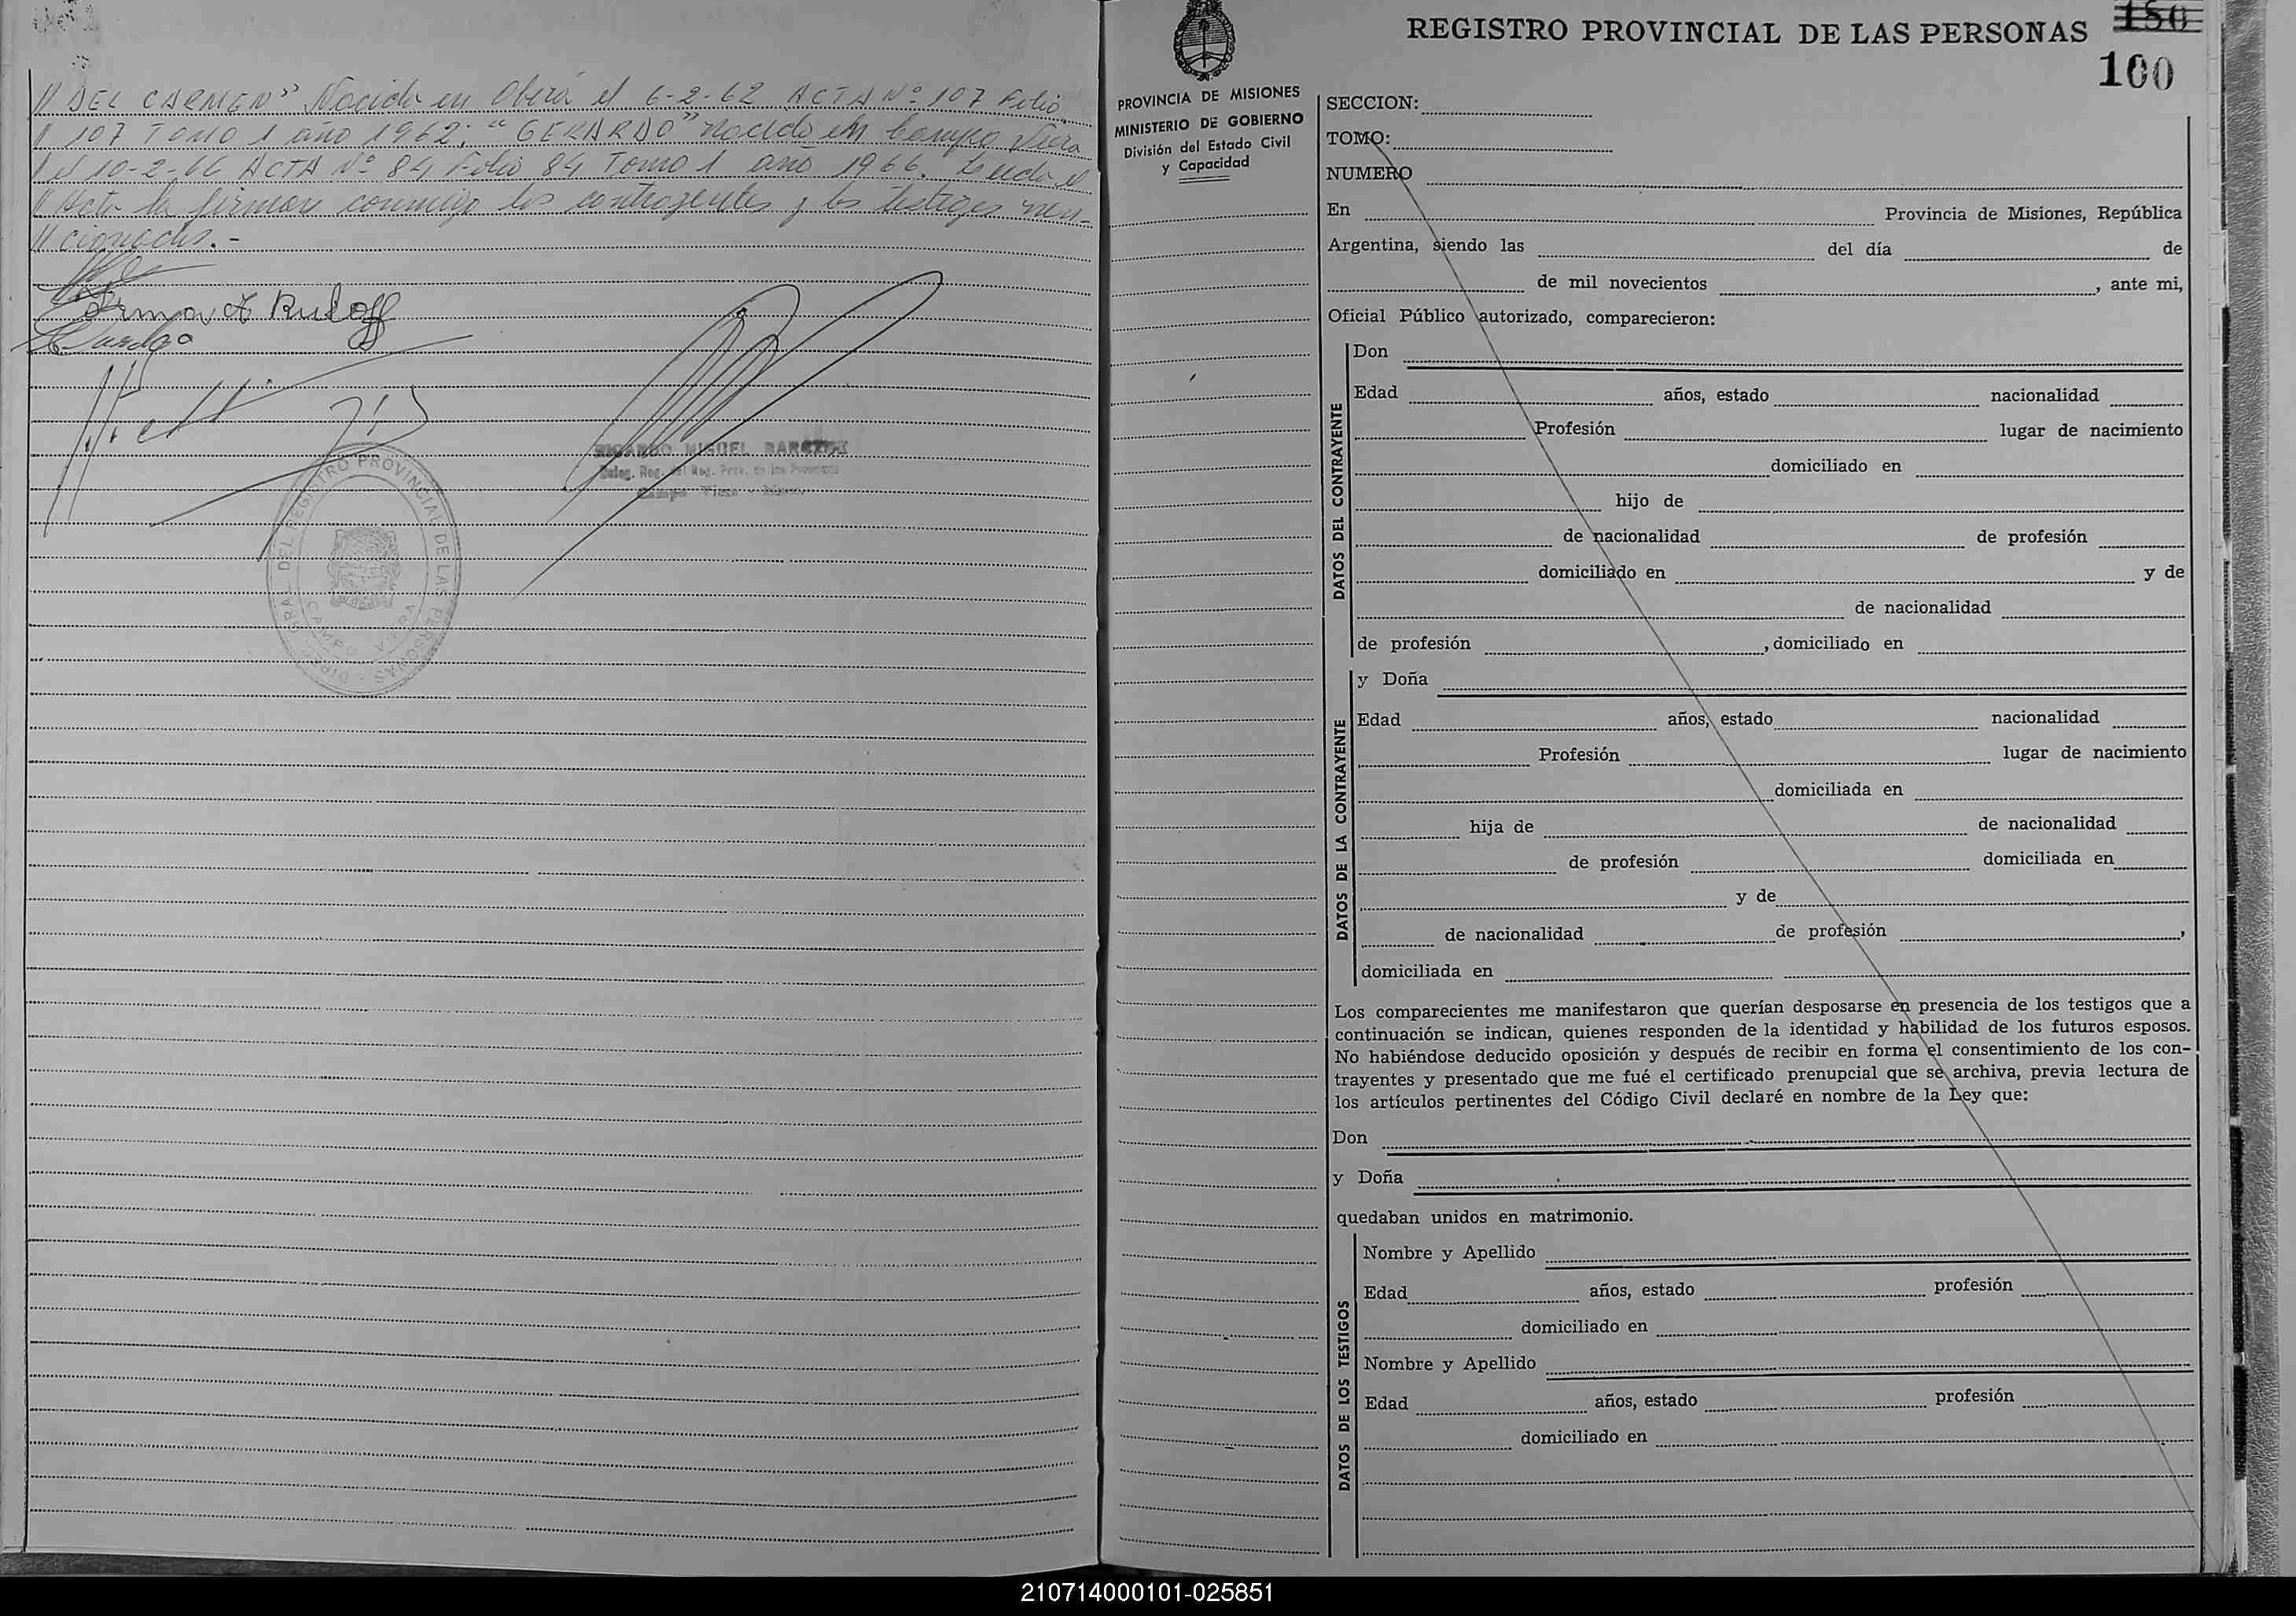 // DEL CARMEN" Nacida en Oberá el 6-2-62 ACTA Nº 107 Folio
// 107 Tomo 1 año 1962; "GERARDO" nacido en Campo Viera
// el 10-2-66 ACTA Nº 84 Folio 84 Tomo 1 año 1966. Leida el
// Acta la firman conmigo los contrayentes y los testigos men-
// cionados.-
Irma A Ruloff
RICARDO MIGUEL
Deleg. Reg. del Reg. Prov. de las Personas
Campo Viera - Mnes.
DIREC. GRAL. DEL REGISTRO PROVINCIAL DE LAS PERSONAS
CAMPO VIERA
REGISTRO PROVINCIAL DE LAS PERSONAS
150
100
PROVINCIA DE MISIONES
MINISTERIO DE GOBIERNO
División del Estado Civil
y Capacidad
SECCION:
TOMO:
NUMERO
En Provincia de Misiones, República
Argentina, siendo las del día de
de mil novecientos , ante mi,
Oficial Público autorizado, comparecieron:
DATOS DEL CONTRAYENTE
Don
Edad años, estado nacionalidad
Profesión lugar de nacimiento
domiciliado en
hijo de
de nacionalidad de profesión
domiciliado en y de
de nacionalidad
de profesión , domiciliado en
DATOS DE LA CONTRAYENTE
y Doña
Edad años, estado nacionalidad
Profesión lugar de nacimiento
domiciliada en
hija de de nacionalidad
de profesión domiciliada en
y de
de nacionalidad de profesión ,
domiciliada en
Los comparecientes me manifestaron que querían desposarse en presencia de los testigos que a
continuación se indican, quienes responden de la identidad y habilidad de los futuros esposos.
No habiéndose deducido oposición y después de recibir en forma el consentimiento de los con-
trayentes y presentado que me fué el certificado prenupcial que se archiva, previa lectura de
los artículos pertinentes del Código Civil declaré en nombre de la Ley que:
Don
y Doña
quedaban unidos en matrimonio.
DATOS DE LOS TESTIGOS
Nombre y Apellido
Edad años, estado profesión
domiciliado en
Nombre y Apellido
Edad años, estado profesión
domiciliado en
210714000101-025851